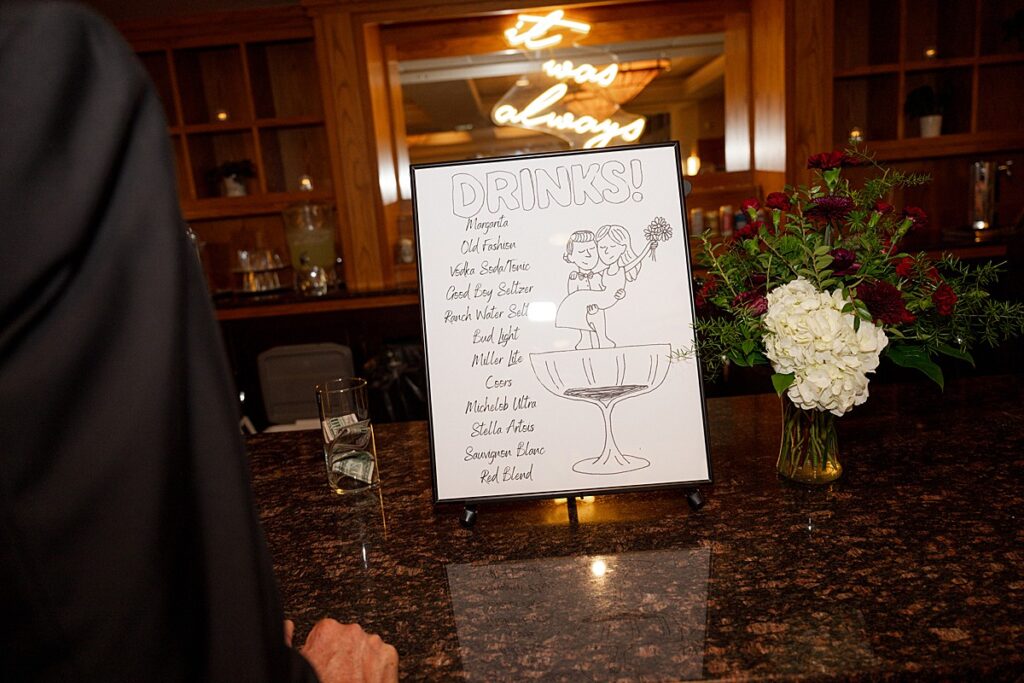 it
was
always
DRINKS!
Margarita
Old Fashion
Vodka Soda/Tonic
Good Boy Seltzer
Ranch Water Selt
Bud Light
Miller Lite
Coors
Michelob Ultra
Stella Artois
Sauvignon Blanc
Red Blend